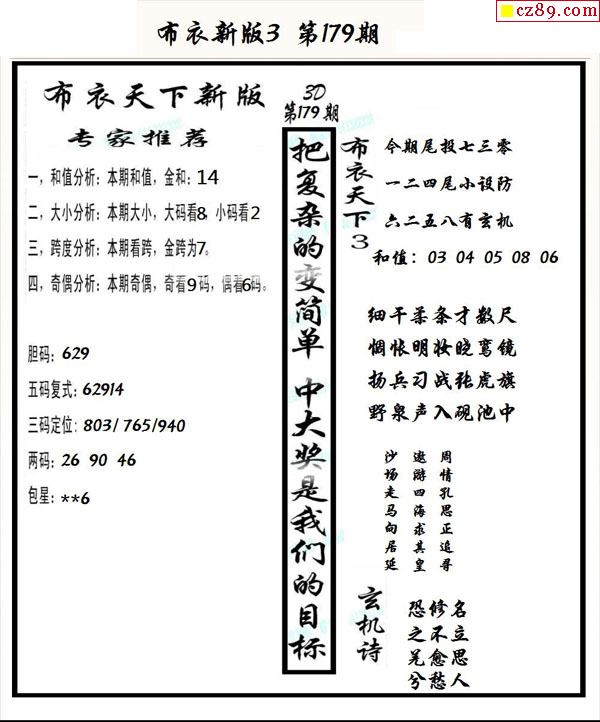 cz89.com
布衣新版3 第179期
布衣天下新版
专家推荐
一，和值分析：本期和值，金和：14
二，大小分析：本期大小，大码看8，小码看2
三，跨度分析：本期看跨，金跨为7。
四，奇偶分析：本期奇偶，奇看9码，偶看6码。
胆码：629
五码复式：62914
三码定位：803/765/940
两码：26 90 46
包星：**6
3D
第179期
把复杂的变简单 中大奖是我们的目标
布衣天下3
今期尾投七三零
一二四尾小设防
六二五八有玄机
和值：03 04 05 08 06
细干柔条才数尺
惆怅明妆晓鸾镜
扬兵习战张虎旗
野泉声入砚池中
周情孔思正追寻
遨游四海求其皇
沙场走马向居延
玄机诗
名立思人
修不愈愁
恐之羌兮